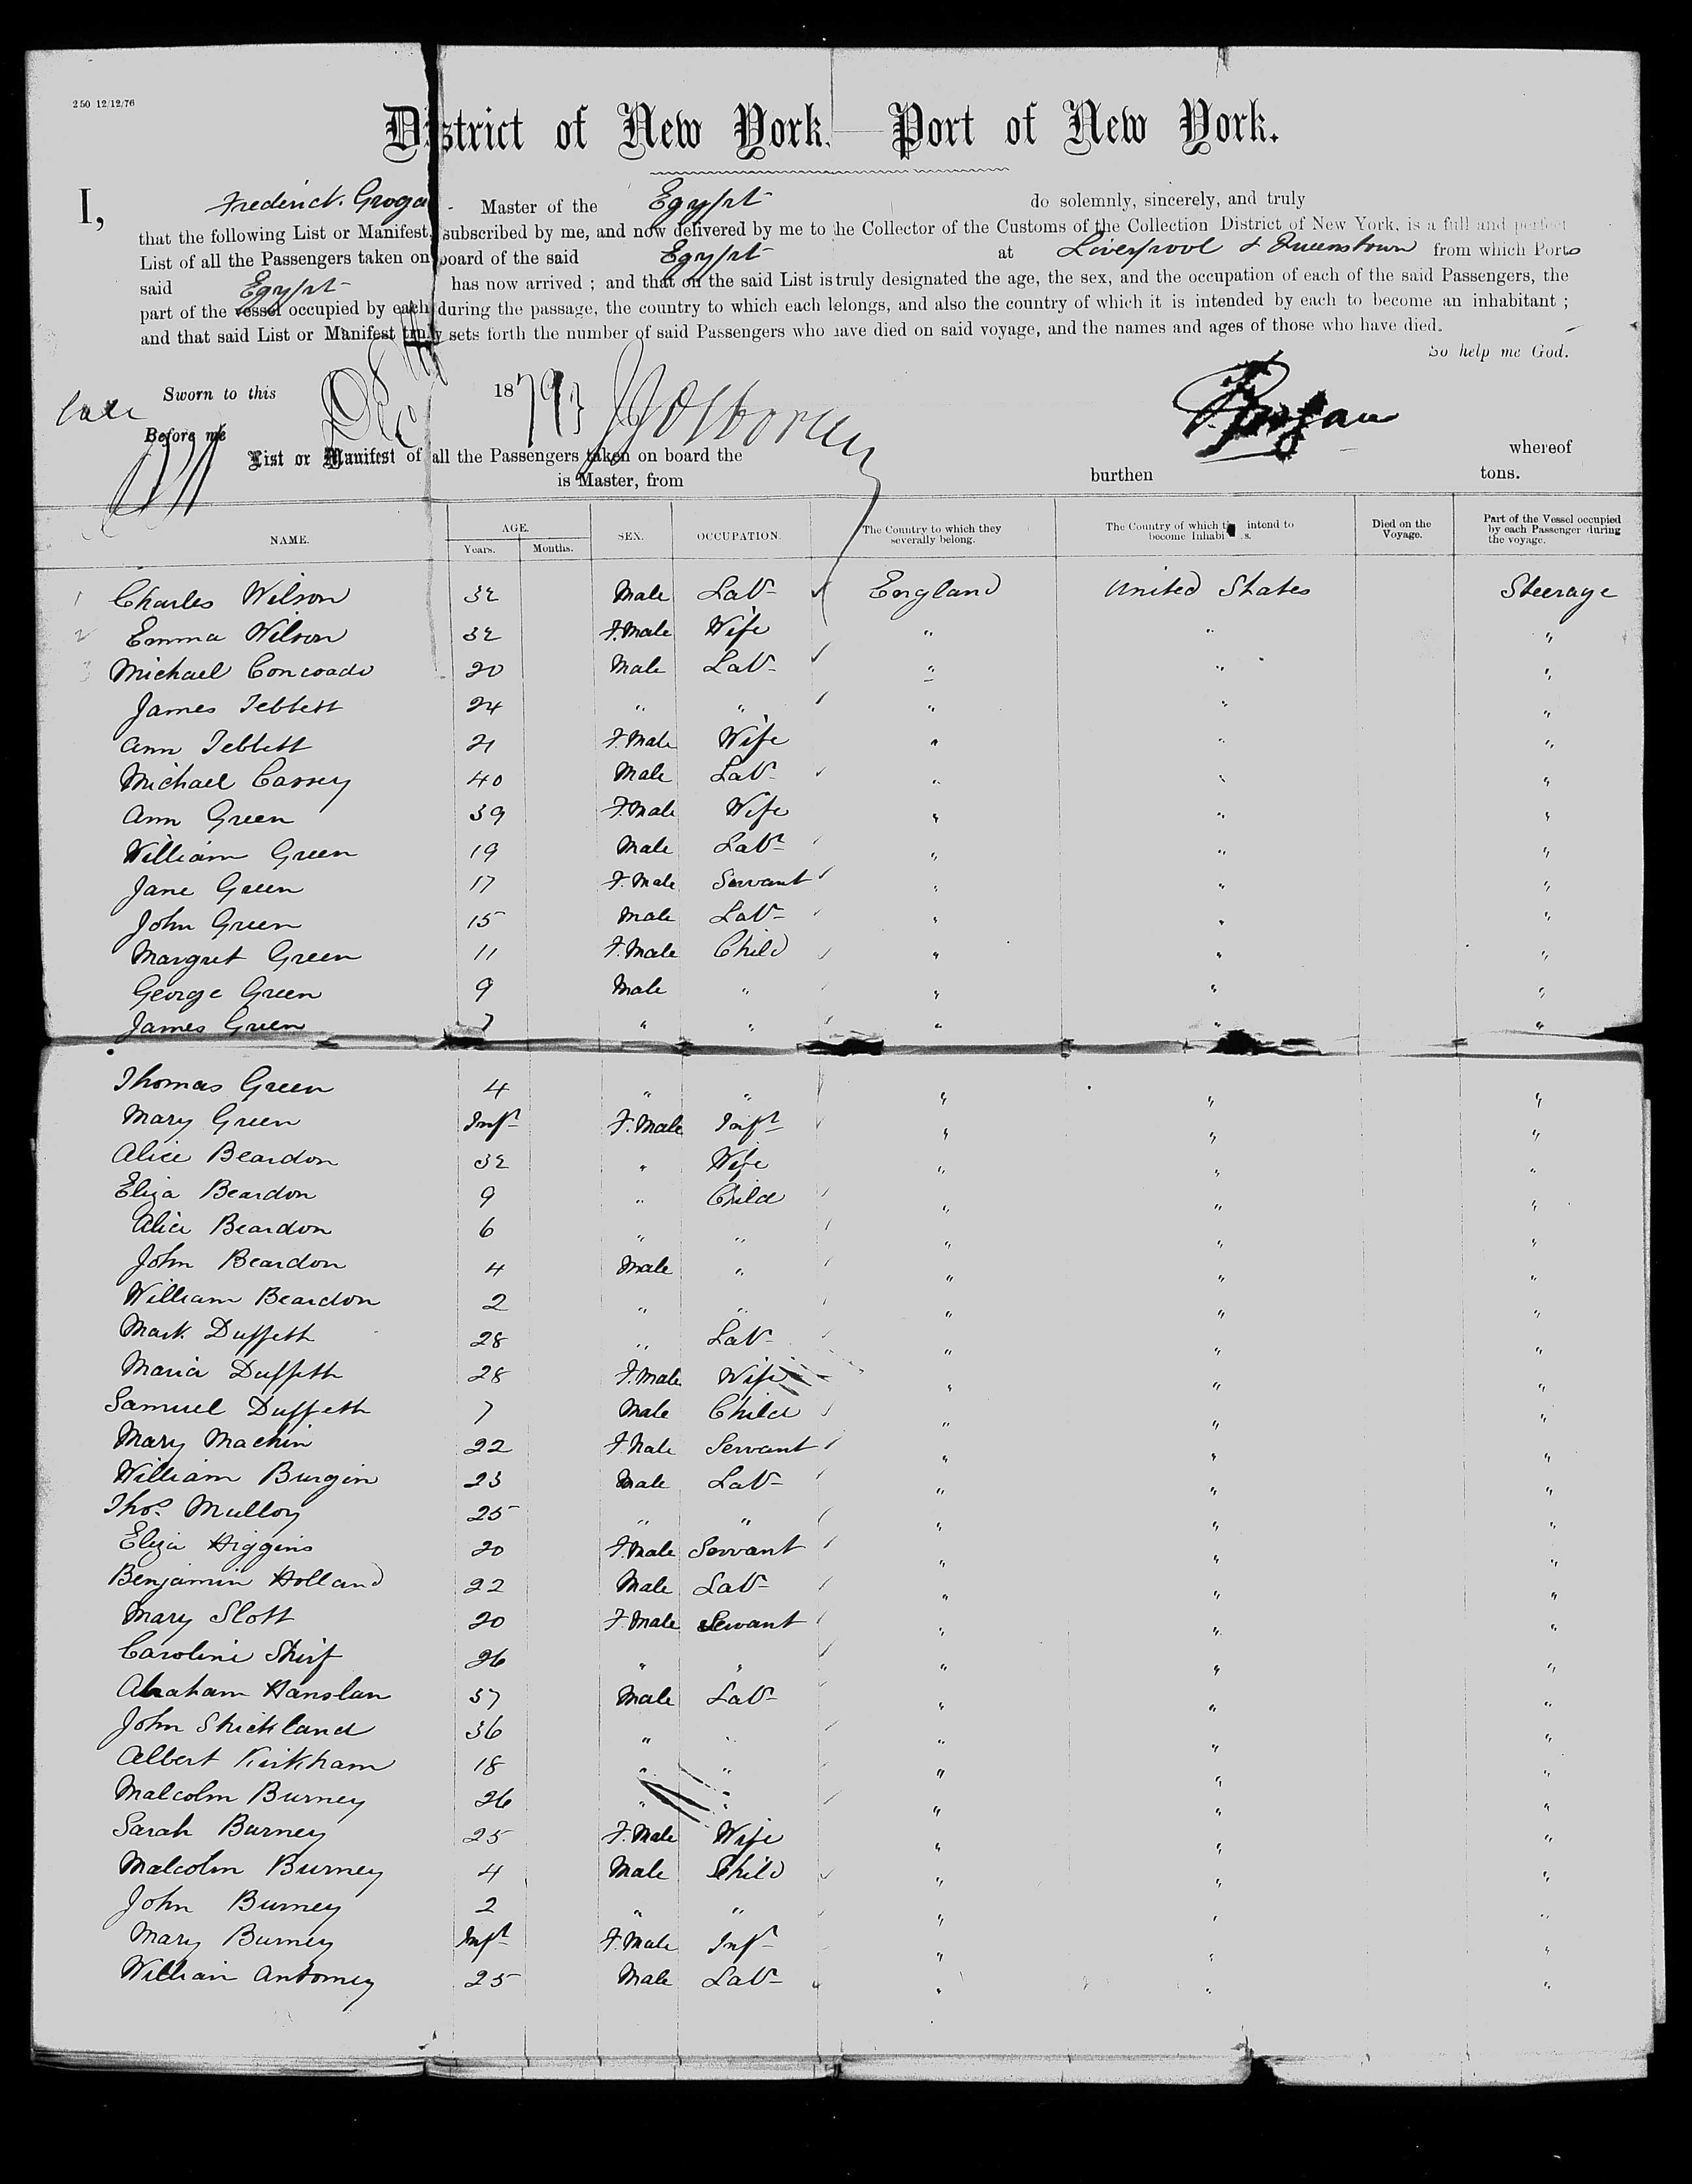 250 12/12/76
District of New York. Port of New York.
I, Frederick Groga - Master of the Egypt do solemnly, sincerely, and truly
that the following List or Manifest, subscribed by me, and now delivered by me to he Collector of the Customs of the Collection District of New York, is a full and perfect
List of all the Passengers taken on board of the said Egypt at Liverpool & Queenstown from which Ports
said Egypt has now arrived ; and that on the said List is truly designated the age, the sex, and the occupation of each of the said Passengers, the
part of the vessel occupied by each during the passage, the country to which each belongs, and also the country of which it is intended by each to become an inhabitant ;
and that said List or Manifest truly sets forth the number of said Passengers who have died on said voyage, and the names and ages of those who have died.
So help me God.
Sworn to this 1879
Before me
List or Manifest of all the Passengers taken on board the whereof
is Master, from burthen tons.
NAME. AGE. Years. Months. SEX. OCCUPATION. The Country to which they severally belong. The Country of which th intend to become Inhabi s. Died on the Voyage. Part of the Vessel occupied by each Passenger during the voyage.
1 Charles Wilson 32 Male Labr England United States Steerage
2 Emma Wilson 32 F.Male Wife " " "
3 Michael 20 Male Labr " " "
James Tebbett 24 " " " " "
Ann Tebbett 21 F.Male Wife " " "
Michael Cassey 40 Male Labr " " "
Ann Green 39 F.Male Wife " " "
William Green 19 Male Labr " " "
Jane Green 17 F.Male Servant " " "
John Green 15 Male Labr " " "
Margret Green 11 F.Male Child " " "
George Green 9 Male " " " "
James Green 7 " " " " "
Thomas Green 4 " " " " "
Mary Green Inft F.Male Inft " " "
Alice Beardon 32 " Wife " " "
Eliza Beardon 9 " Child " " "
Alice Beardon 6 " " " " "
John Beardon 4 Male " " " "
William Beardon 2 " " " " "
Mark Duffeth 28 " Labr " " "
Maria Duffeth 28 F.Male Wife " " "
Samuel Duffeth 7 Male Child " " "
Mary Machin 22 F.Male Servant " " "
William Burgin 23 Male Labr " " "
Thos. Mulloy 25 " " " " "
Eliza Higgins 20 F.Male Servant " " "
Benjamin Holland 22 Male Labr " " "
Mary Slott 20 F.Male Servant " " "
Caroline 26 " " " " "
Abraham Hanslan 37 Male Labr " " "
John Strickland 36 " " " " "
Albert Kirkham 18 " " " " "
Malcolm Burney 26 " " " " "
Sarah Burney 25 F.Male Wife " " "
Malcolm Burney 4 Male Child " " "
John Burney 2 " " " " "
Mary Burney Inft F.Male Inft " " "
William Antomey 25 Male Labr " " "